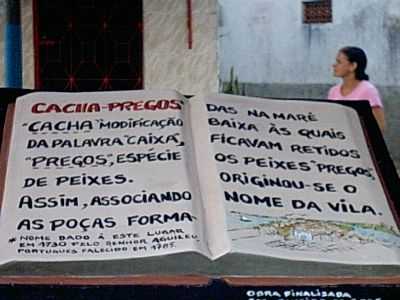 CACHA-PREGOS
"CACHA" MODIFICAÇÃO
DA PALAVRA "CAIXA",
"PREGOS", ESPÉCIE
DE PEIXES.
ASSIM, ASSOCIANDO
AS POÇAS FORMA-
* NOME DADO À ESTE LUGAR
EM 1730 PELO SENHOR AGUILEU,
PORTUGUES FALECIDO EM 1785.
DAS NA MARÉ
BAIXA ÀS QUAIS
FICAVAM RETIDOS
OS PEIXES "PREGOS",
ORIGINOU-SE O
NOME DA VILA.
OBRA FINALISADA